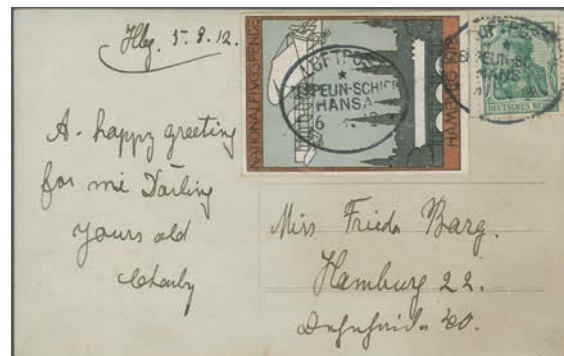 Hbg. 5.8.12.
NATIONALFLUGSPENDE
HAMBURG 1912
LUFTPOST
★
ZEPPELIN-SCHIFF
HANSA
LUFTPOS
★
HANS
DEUTSCHES REICH
A. happy greeting
for mi Darling
yours old
Charly
Miss Frieda Barg.
Hamburg 22.
40.